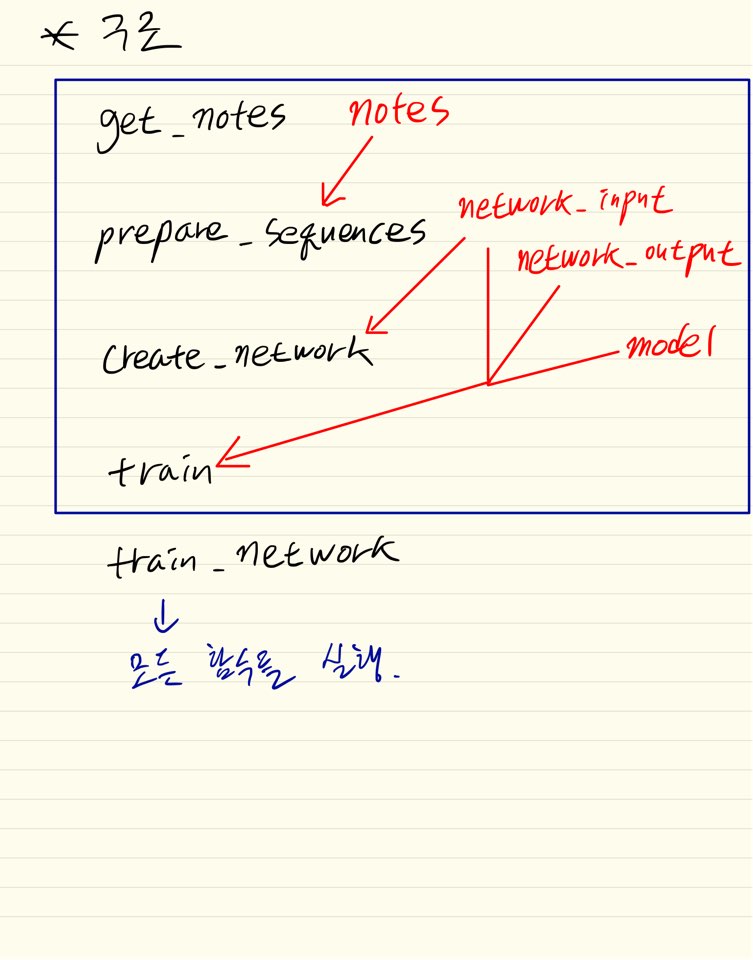 * 구조
get_notes notes
prepare_sequences network_input
network_output
create_network model
train
train_network
↓
모든 함수를 실행.